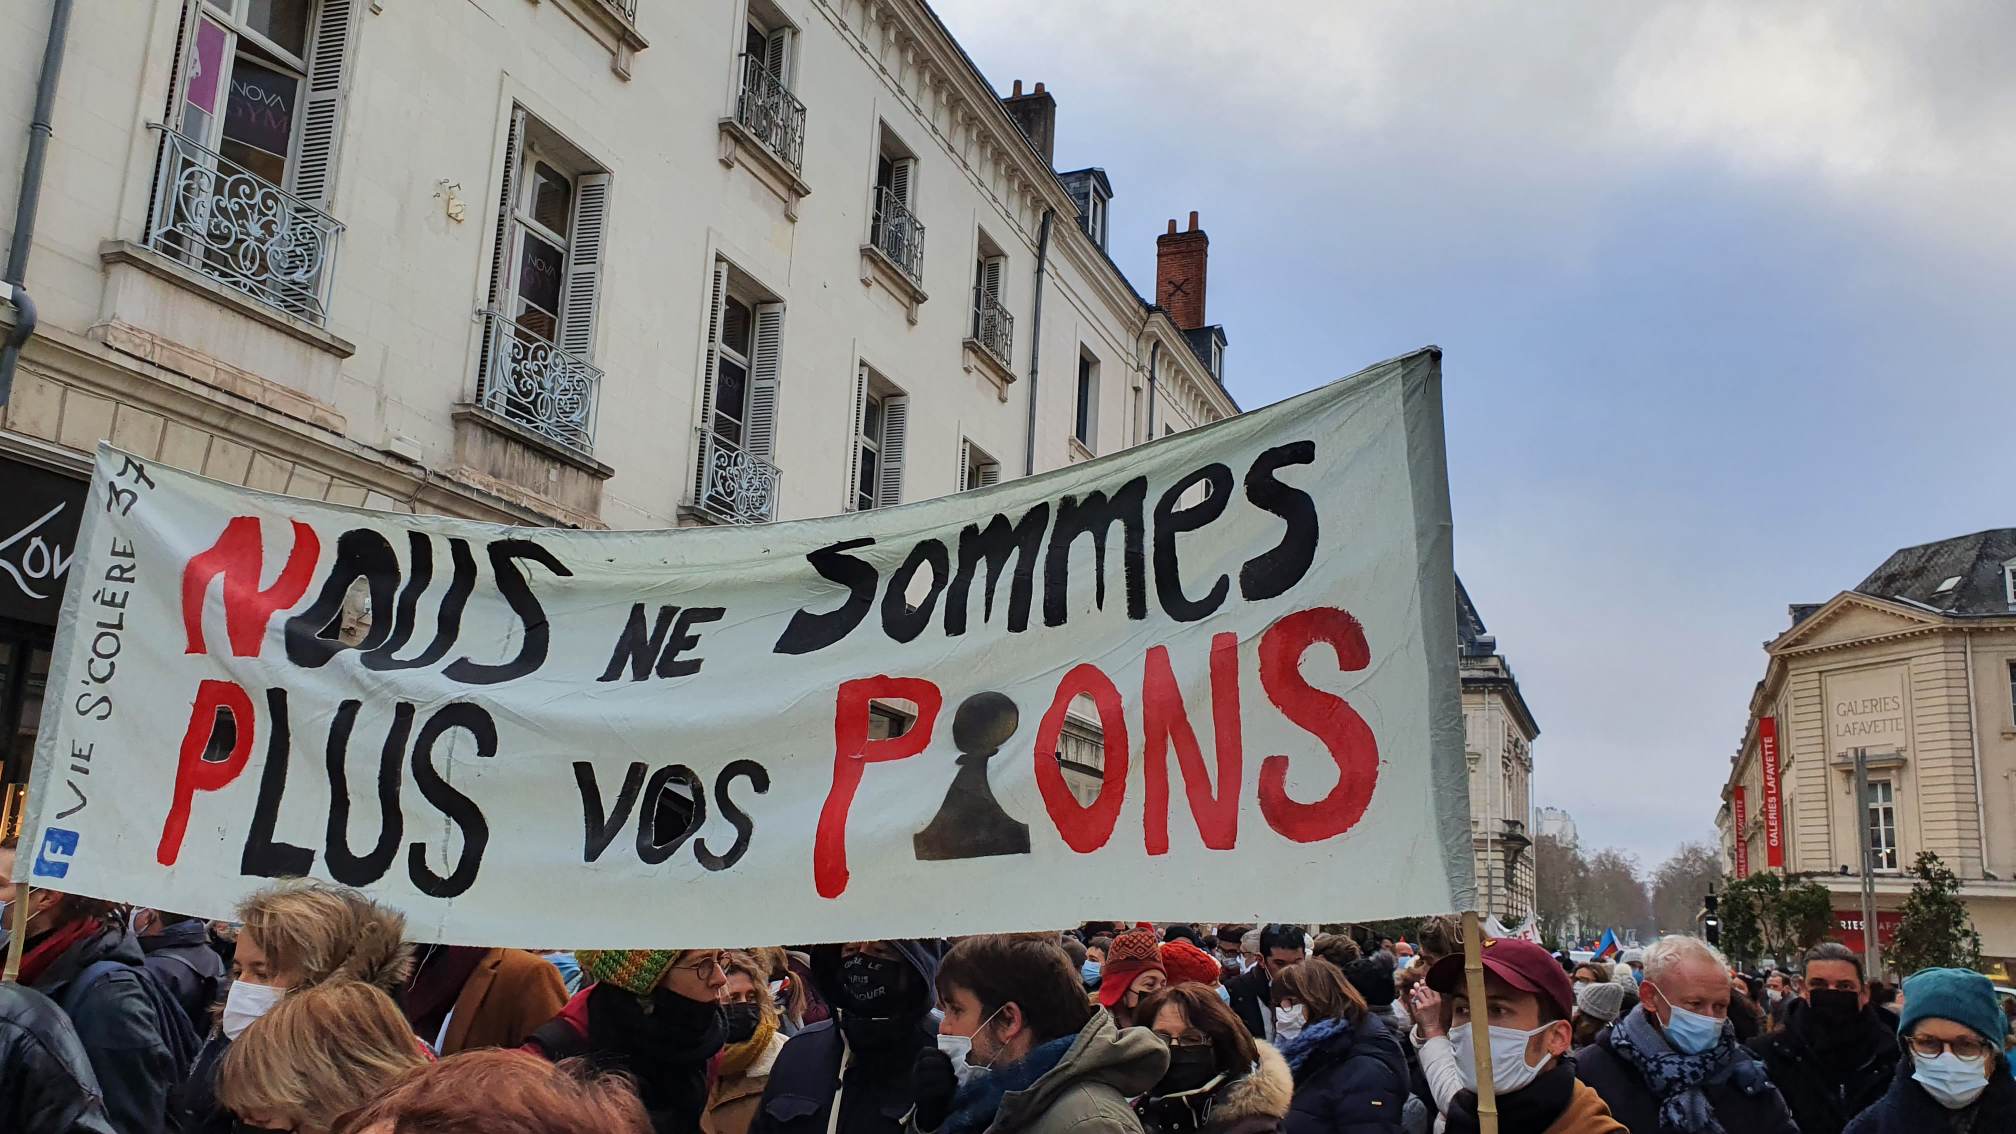 NOVA
GYM
NOVA
GYM
NOVA
VIE S'COLÈRE 37
f
NOUS NE SOMMES
PLUS VOS PIONS
GALERIES
LAFAYETTE
GALERIES LAFAYETTE